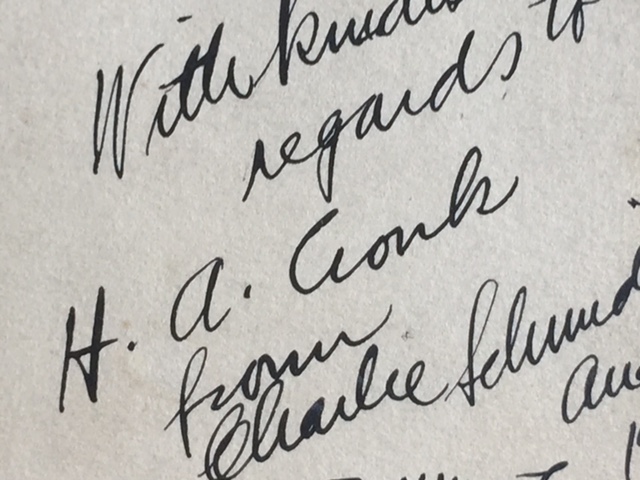 With kindest
regards to
H. A. Cronk
from
Charlie Schmid